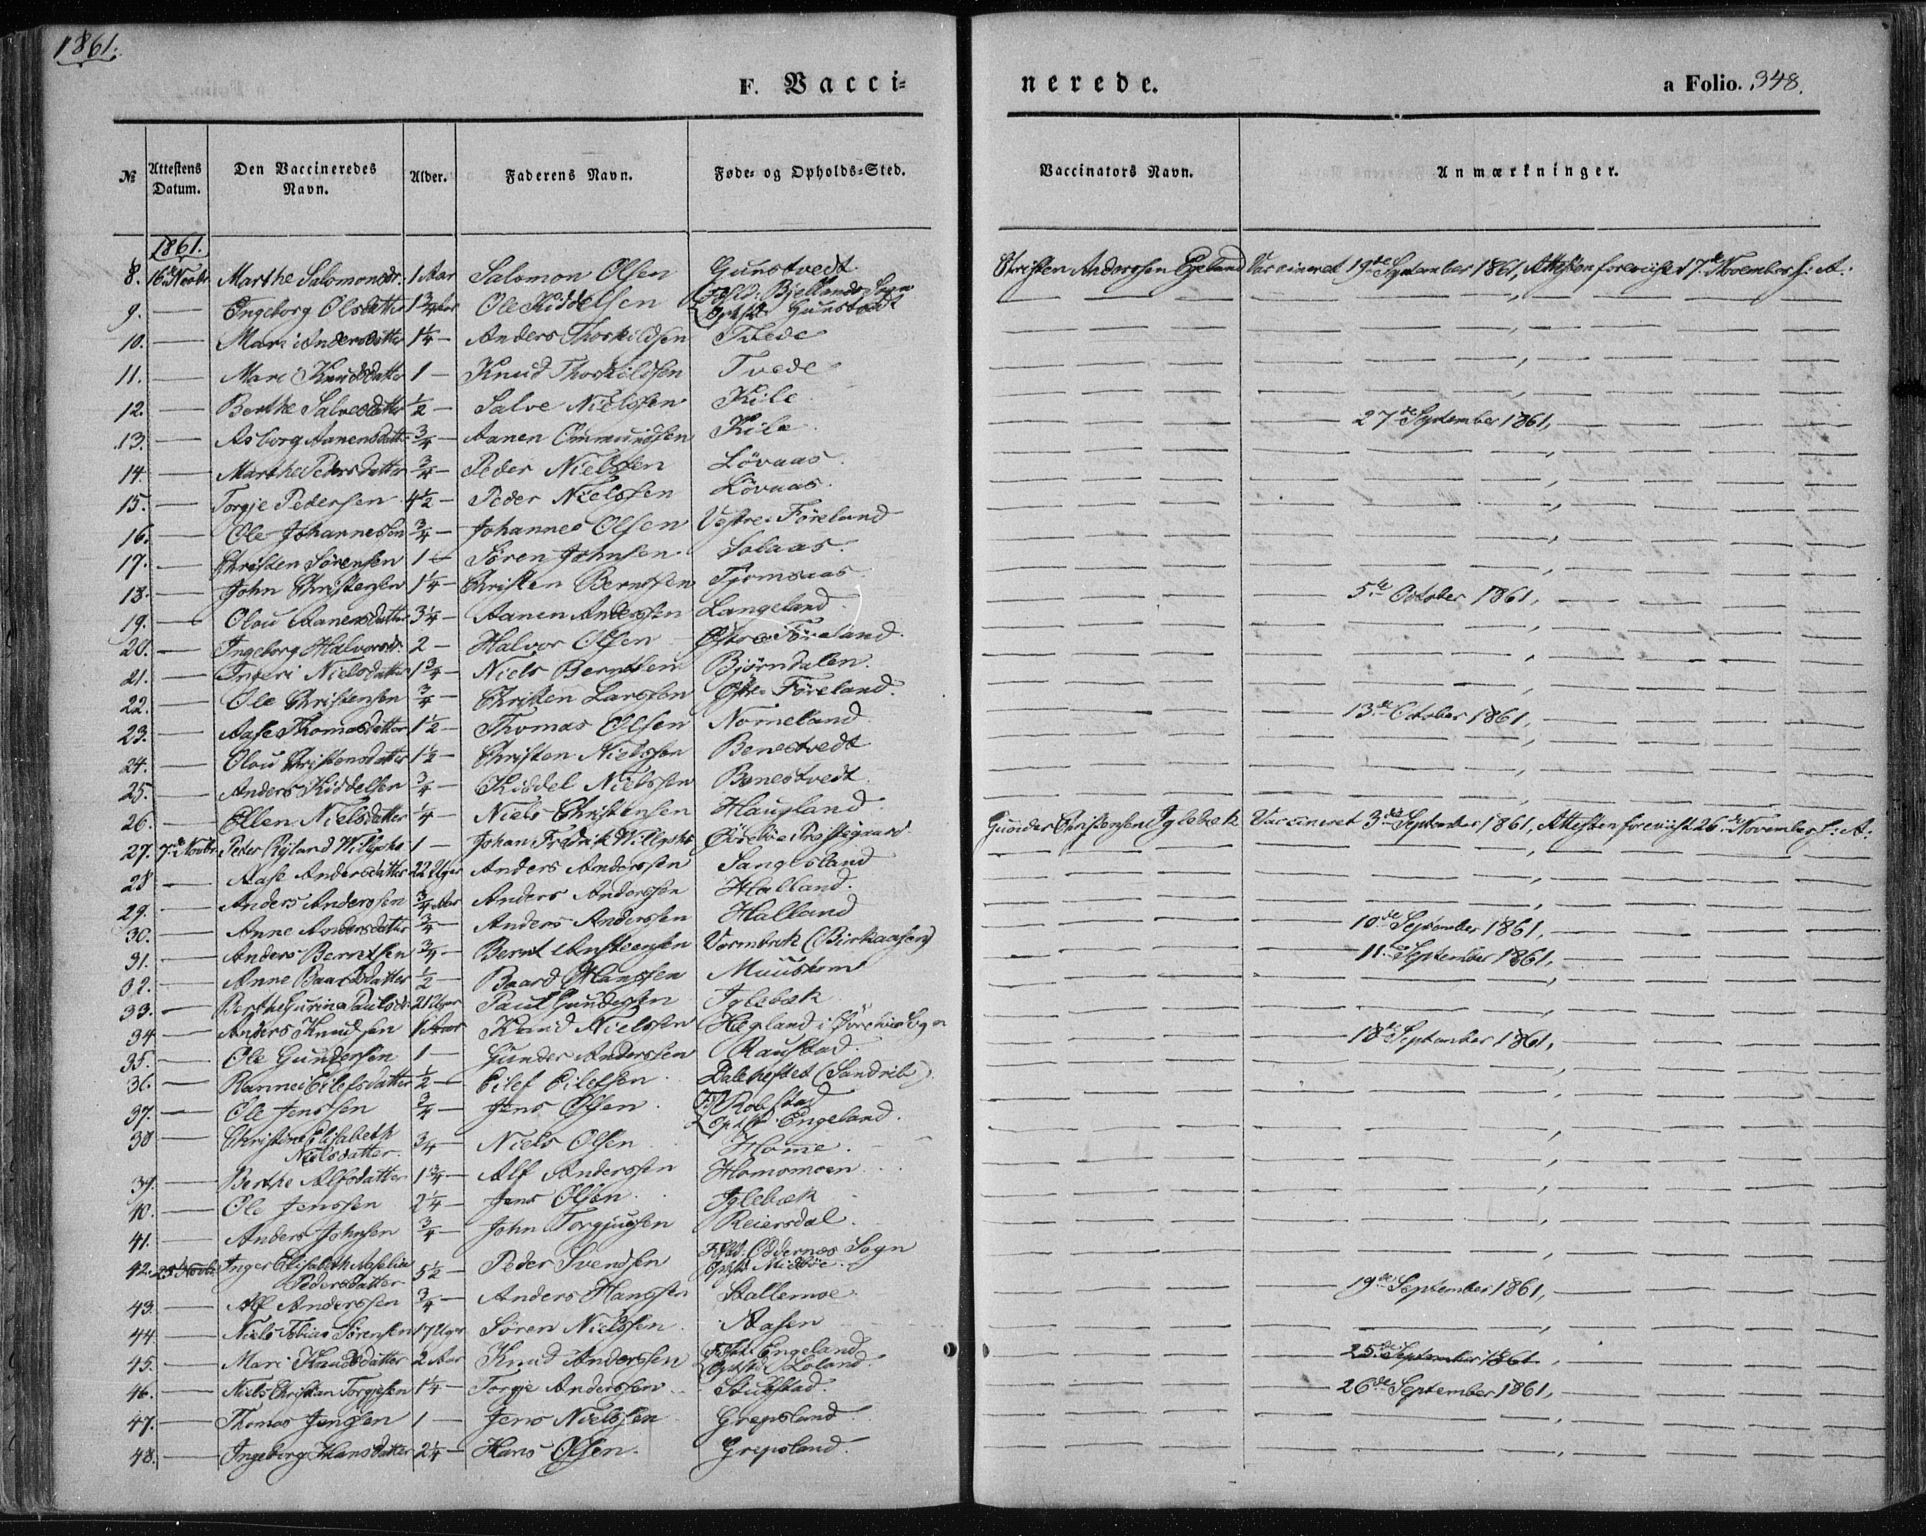 1861.
F. Vacci-
nerede.
a Folio. 348.
№ Attestens Datum. Den Vaccineredes Navn. Alder. Faderens Navn. Føde- og Opholds-Sted. Vaccinators Navn. Anmærkninger.
1861.
8. 16de Novbr Marthe Salomonsdr. 1 Aar Salomon Olsen Gunstvedt Christen Anderssen Egeland Vaccineret 19de September 1861, Attesten foreviist 17de November s: A:
9. — Engeborg Olsdatter 1 3/4 Aar Ole Kiddelsen Fødst: Bjellands Sogn
Opst: Gunstvedt
10. — Mari Andersdatter 1 1/4 — Anders Thorkildsen Tvede
11. — Mari Knudsdatter 1 — Knud Thorkildsen Tvede
12. — Berthe Salvesdatter 1/2 — Salve Nielssen Kile
13. — Asborg Aanensdatter 3/4 — Aanen Ommundsen Kile — 27de September 1861, —
14. — Marthe Pedersdatter 3/4 — Peder Nielssen Lövaas.
15. — Torgje Pedersen 4 1/2 — Peder Nielssen Lövaas.
16. — Ole Johannessen 3/4 — Johannes Olsen Vestre Föreland
17. — Christen Sörensen 1 — Sören Johnsen Solaas.
18. — John Christensen 1 1/4 — Christen Berntsen Tjomsaas — 5te October 1861, —
19. — Olou Aanensdatter 3 1/4 — Aanen Anderssen Langeland
20. — Ingeborg Halvorsdr. 2 — Halvor Olsen Østre Föreland.
21. — Inberi Nielsdatter 1 3/4 — Niels Berntsen Bjørndalen.
22. — Ole Christensen 3/4 — Christen Larssen Østre Föreland.
23. — Aase Thomasdatter 1 1/2 — Thomas Olsen Nomeland — 13de October 1861, —
24. — Olou Christensdatter 1 1/2 — Christen Nielssen Benestvedt
25. — Anders Kiddelsen 3/4 — Kiddel Nielssen Benestvedt
26. — Ellen Nielsdatter 1/4 — Niels Christensen Haugland
27. 7de Novbr Peder Ryland Willepke 1 — Johan Fredrik Willepke Øvrebø Præstegaard Gunder Christensen Iglebæk Vaccineret 3de September 1861, Attesten foreviist 26de November s: A:
28 — Aase Andersdatter 22 Uger Anders Anderssen Sangesland
29. — Anders Anderssen 3/4 Aar Anders Anderssen Halland.
30. — Anne Andersdatter 3/4 — Anders Anderssen Halland — 10de September 1861, —
31. — Anders Berntsen 3/4 — Bernt Ansteensen Vormbrok (Birkaasen) — 11te September 1861, —
32. — Anne Baardsdatter 1/2 — Baard Hanssen Muuskom
33. — Berthe Gurina Paulsd: 21 Uger Paul Gundersen Iglebæk
34 — Anders Knudsen 1 Aar Knud Nielssen Hegland i Øvrebø Sogn — 18de September 1861, —
35. — Ole Gundersen 1 — Gunder Anderssen Raustad.
36. — Rannei Eilefsdatter 1/2 — Eilef Eilefsen Daleheftet (Sandrib)
37. — Ole Jenssen 3/4 — Jens Olsen. Robstad
Opst: Engeland.
38 — Christine Elisabeth
Nielsdatter. 3/4 — Niels Olsen Home.
39. — Berthe Alfsdatter 1 3/4 — Alf Anderssen Homsmoen
40. — Ole Jenssen 2 1/4 — Jens Olsen. Iglebæk
41. — Anders Johnsen 3/4 — John Torgjussen Reiersdal.
42. 25 Novbr Inger Elisabeth Aselia
Pedersdatter 5 1/2 — Peder Svendsen Fødst: Oddernæs Sogn
Opst: Midböe
43. — Alf Anderssen 3/4 — Anders Hanssen Stallemoe — 19de September 1861, —
44. — Niels Tobias Sörensen 17 Uger Sören Nielssen Aasen
45. — Mari Knudsdatter 2 Aar Knud Anderssen Fødst: Engeland
Opst: Loland. — 25de September 1861 —
46. — Niels Christian Torgjesen 1 1/4 — Torgje Anderssen Stubstad. — 26de September 1861, —
47. — Thomas Jenssen 1 — Jens Nielssen Grepsland.
48. — Ingeborg Hansdatter 2 1/4 — Hans Olsen. Grepsland.